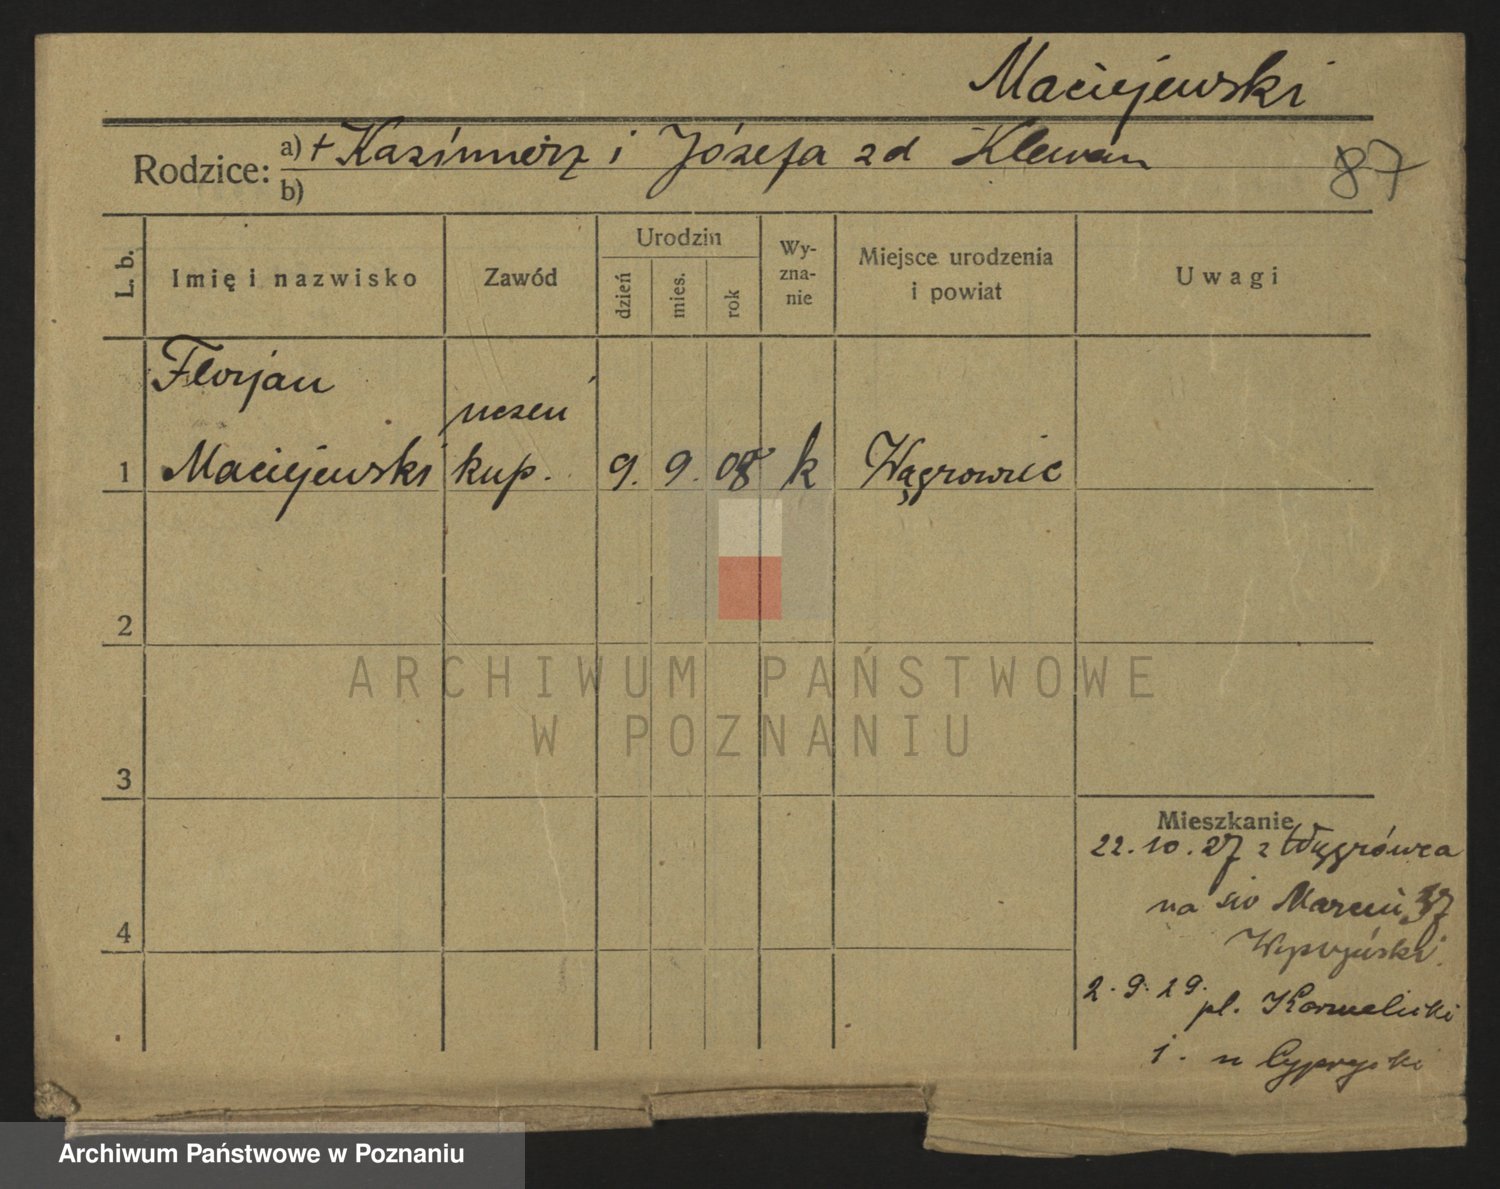 Maciejewski
Rodzice: a) + Kazimierz i Józefa zd Klewan
b)
87
L. b.
Imię i nazwisko
Zawód
Urodzin
dzień
mies.
rok
Wy-
zna-
nie
Miejsce urodzenia
i powiat
Uwagi
Florjan
uczeń
1 Maciejewski kup. 9. 9. 08 k Wągrowiec
2
3
4
ARCHIWUM PAŃSTWOWE
W POZNANIU
Mieszkanie
22.10.27 z Wągrówca
na św Marcin 37
2.9.29. pl. Karmelicki
1. u
Archiwum Państwowe w Poznaniu